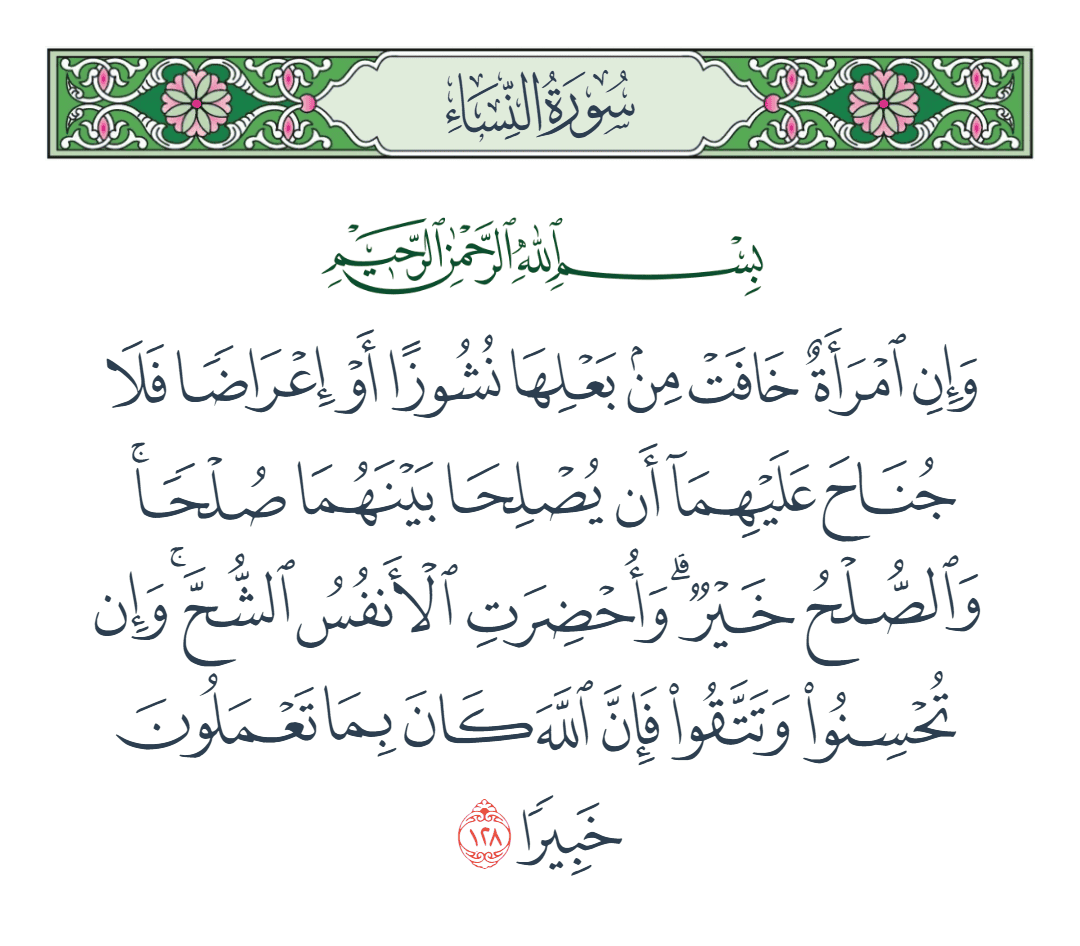 سُورَةُ النِّسَاءِ
بِسْمِ ٱللَّهِ ٱلرَّحْمَٰنِ ٱلرَّحِيمِ
وَإِنِ ٱمْرَأَةٌ خَافَتْ مِنۢ بَعْلِهَا نُشُوزًا أَوْ إِعْرَاضًا فَلَا
جُنَاحَ عَلَيْهِمَآ أَن يُصْلِحَا بَيْنَهُمَا صُلْحًاۚ
وَٱلصُّلْحُ خَيْرٌۗ وَأُحْضِرَتِ ٱلْأَنفُسُ ٱلشُّحَّۚ وَإِن
تُحْسِنُوا۟ وَتَتَّقُوا۟ فَإِنَّ ٱللَّهَ كَانَ بِمَا تَعْمَلُونَ
خَبِيرًا ١٢٨